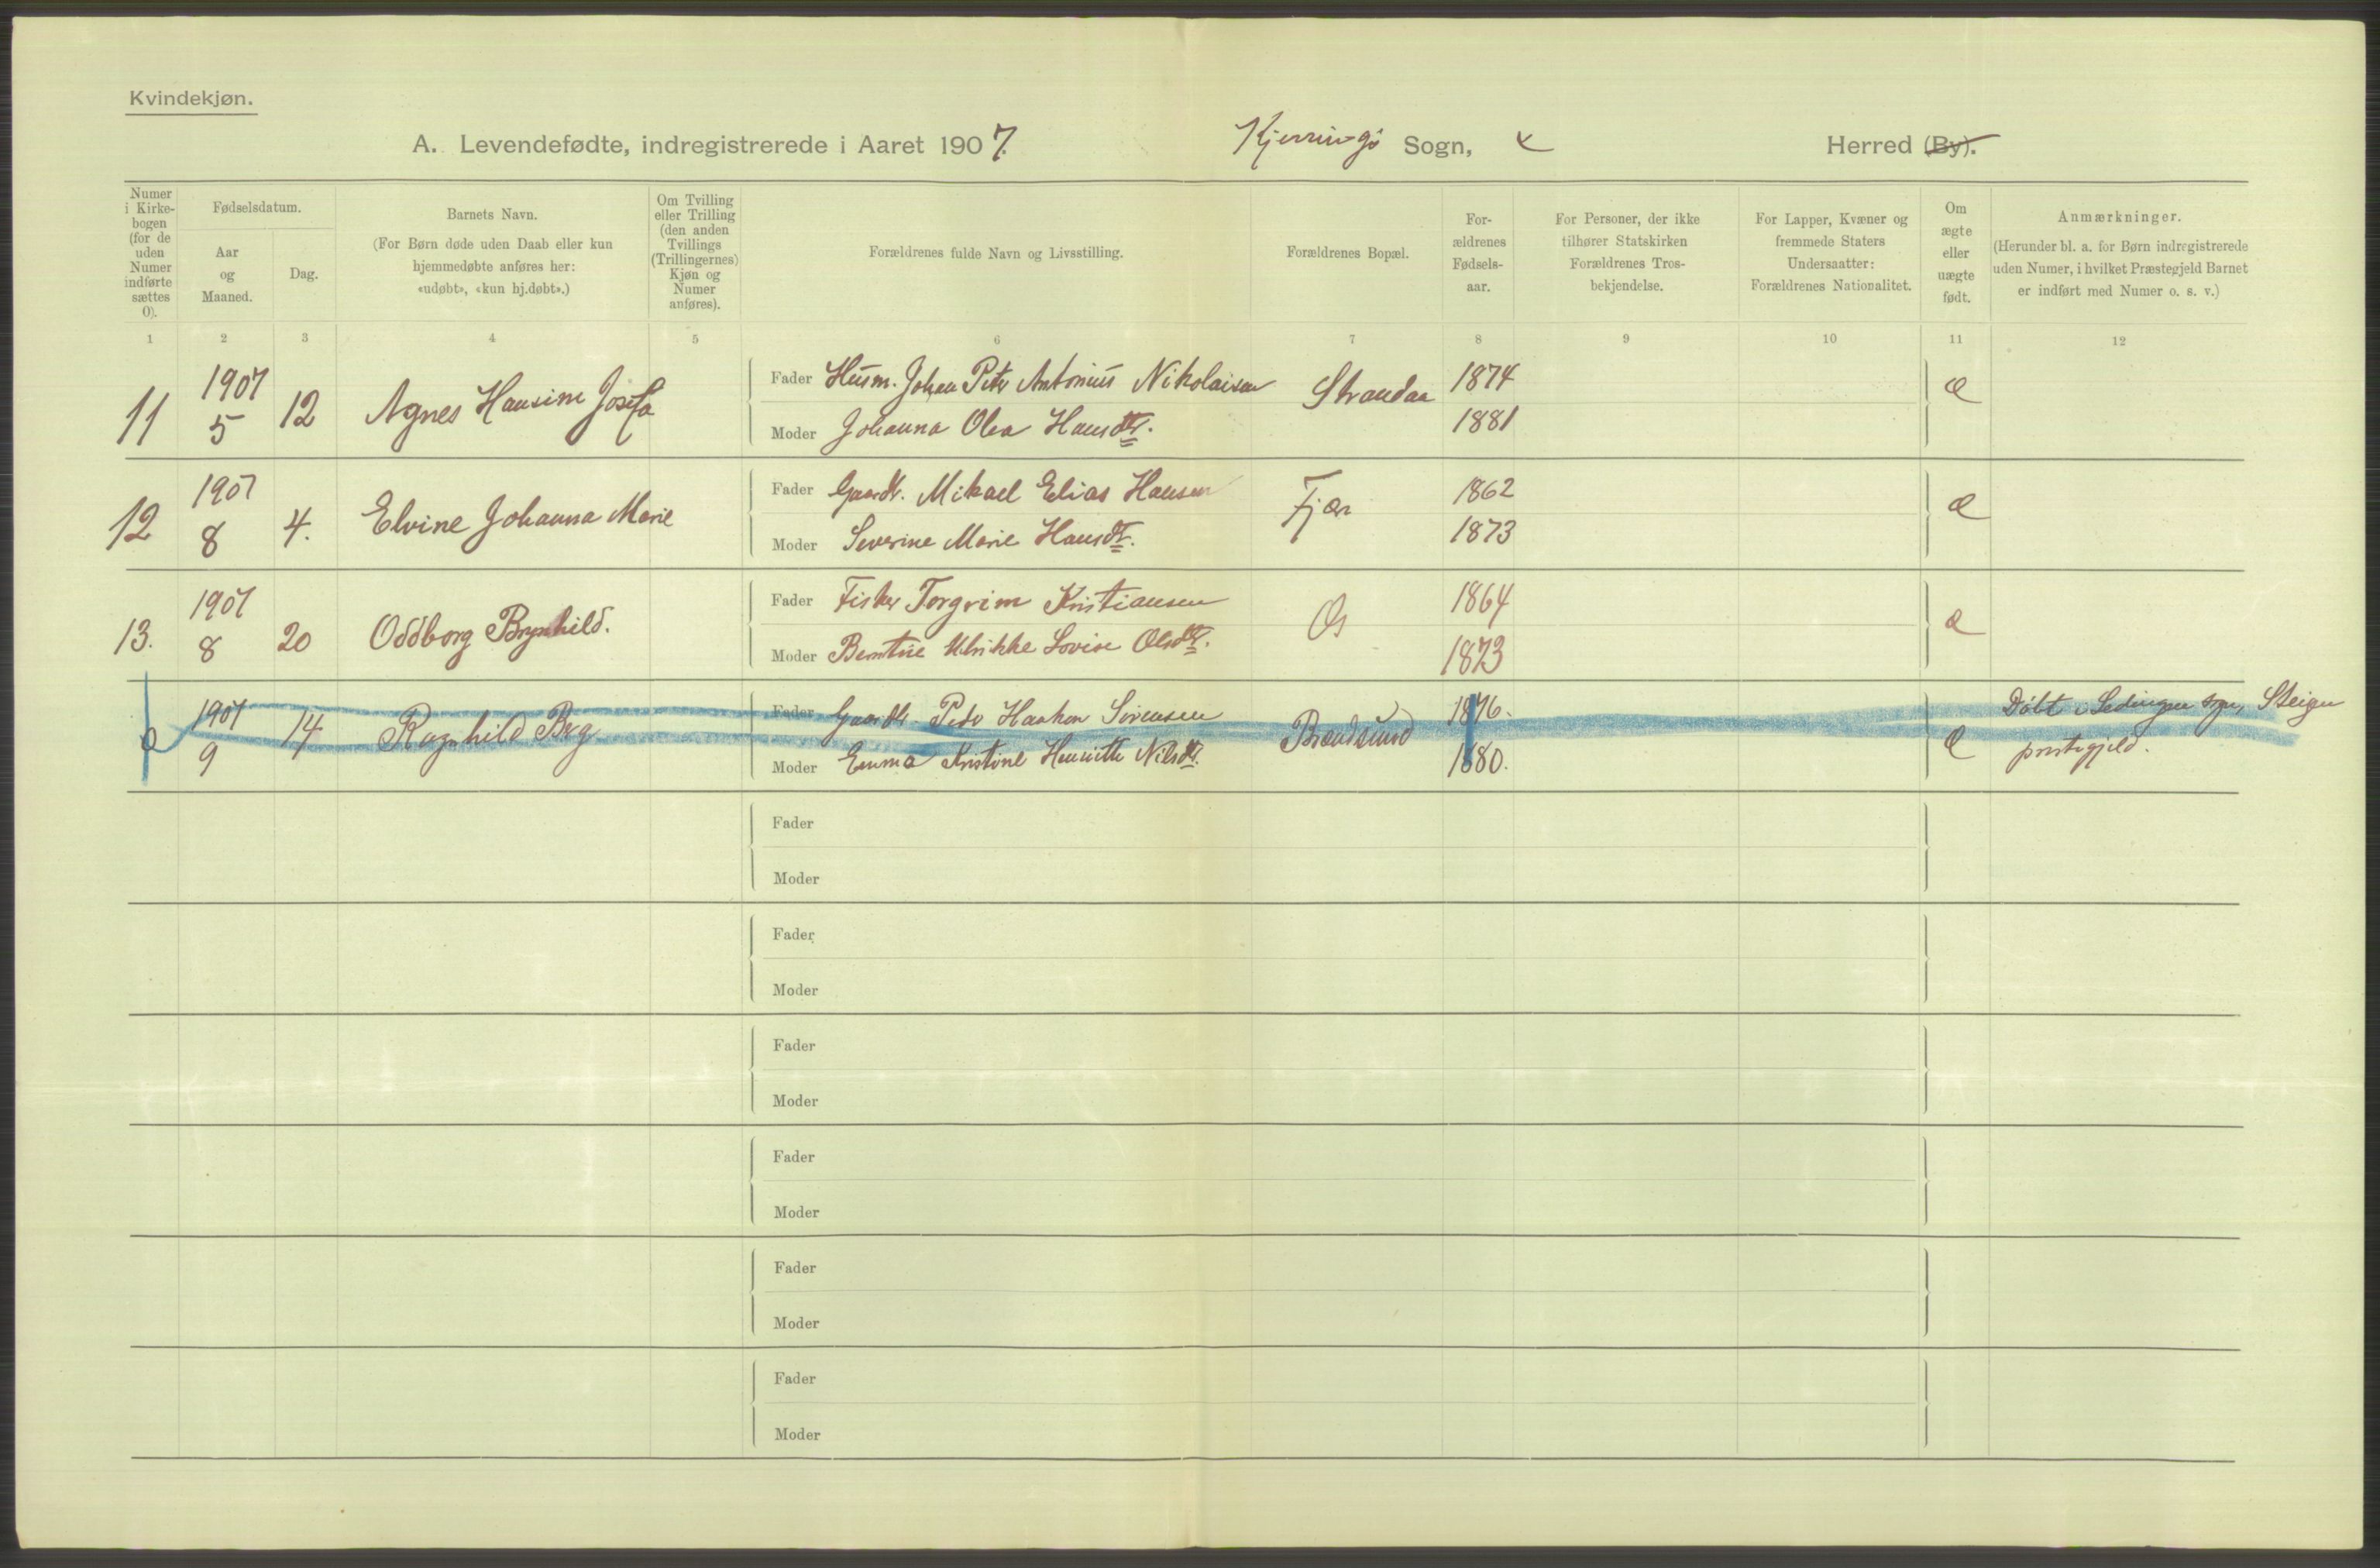 Kvindekjøn.
A. Levendefødte, indregistrerede i Aaret 1907. Kjerringø Sogn, Herred (By).
Numer i Kirkebogen (for de uden Numer indførte sættes 0).
Fødselsdatum.
Aar og Maaned.
Dag.
Barnets Navn.
(For Børn døde uden Daab eller kun hjemmedøbte anføres her: «udøbt», «kun hj.døbt».)
Om Tvilling eller Trilling (den anden Tvillings (Trillingernes) Kjøn og Numer anføres).
Forældrenes fulde Navn og Livsstilling.
Forældrenes Bopæl.
For-
ældrenes
Fødsels-
aar.
For Personer, der ikke
tilhører Statskirken
Forældrenes Tros-
bekjendelse.
For Lapper, Kvæner og
fremmede Staters
Undersaatter:
Forældrenes Nationalitet.
Om
ægte
eller
uægte
født.
Anmærkninger.
(Herunder bl. a. for Børn indregistrerede
uden Numer, i hvilket Præstegjeld Barnet
er indført med Numer o. s. v.)
1 2 3 4 5 6 7 8 9 10 11 12
11 1907 5 12 Agnes Hansine Josefa
Fader Husm. Johan Peter Antonius Nikolaisen Strandaa 1874 æ
Moder Johanna Olea Hansdtr. 1881
12 1907 8 4. Elvine Johanna Marie
Fader Gaardbr. Mikael Elias Hansen Fjær 1862 æ
Moder Severine Marie Hansdtr. 1873
13. 1907 8 20 Oddborg Brynhild.
Fader Fisker Torgrim Kristiansen Os 1864 æ
Moder Berntine Ulrikke Lovise Olsdtr. 1873
0 1907 9 14 Ragnhild Berg
Fader Gaardbr. Peder Haakon Sørensen Brændsund 1876. æ Døbt i Ledingen sogn, Steigen
Moder Emma Kristine Henriette Nilsdtr. 1880. prestegjeld.
Fader
Moder
Fader
Moder
Fader
Moder
Fader
Moder
Fader
Moder
Fader
Moder